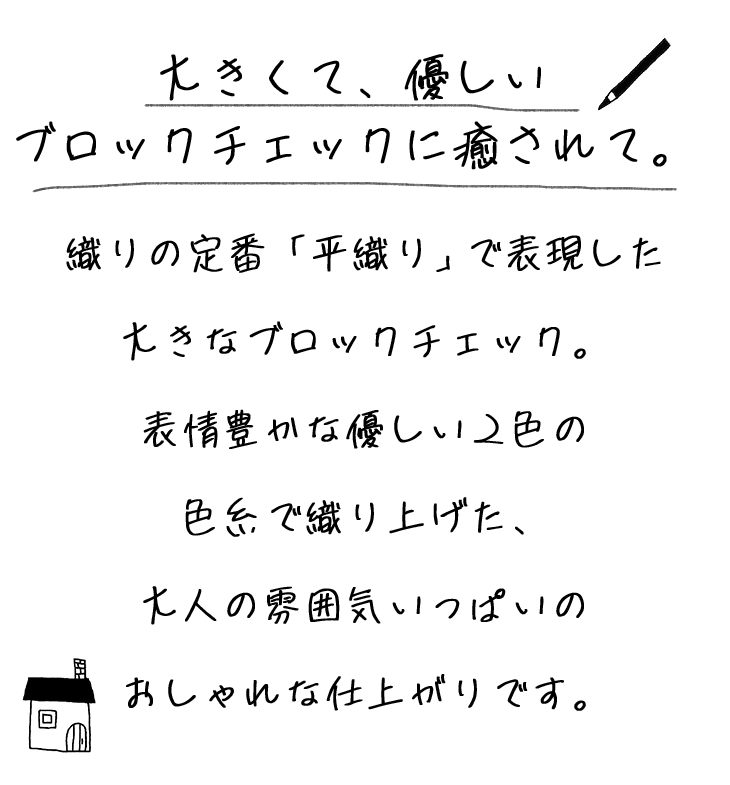 大きくて、優しい
ブロックチェックに癒されて。
織りの定番「平織り」で表現した
大きなブロックチェック。
表情豊かな優しい2色の
色糸で織り上げた、
大人の雰囲気いっぱいの
おしゃれな仕上がりです。